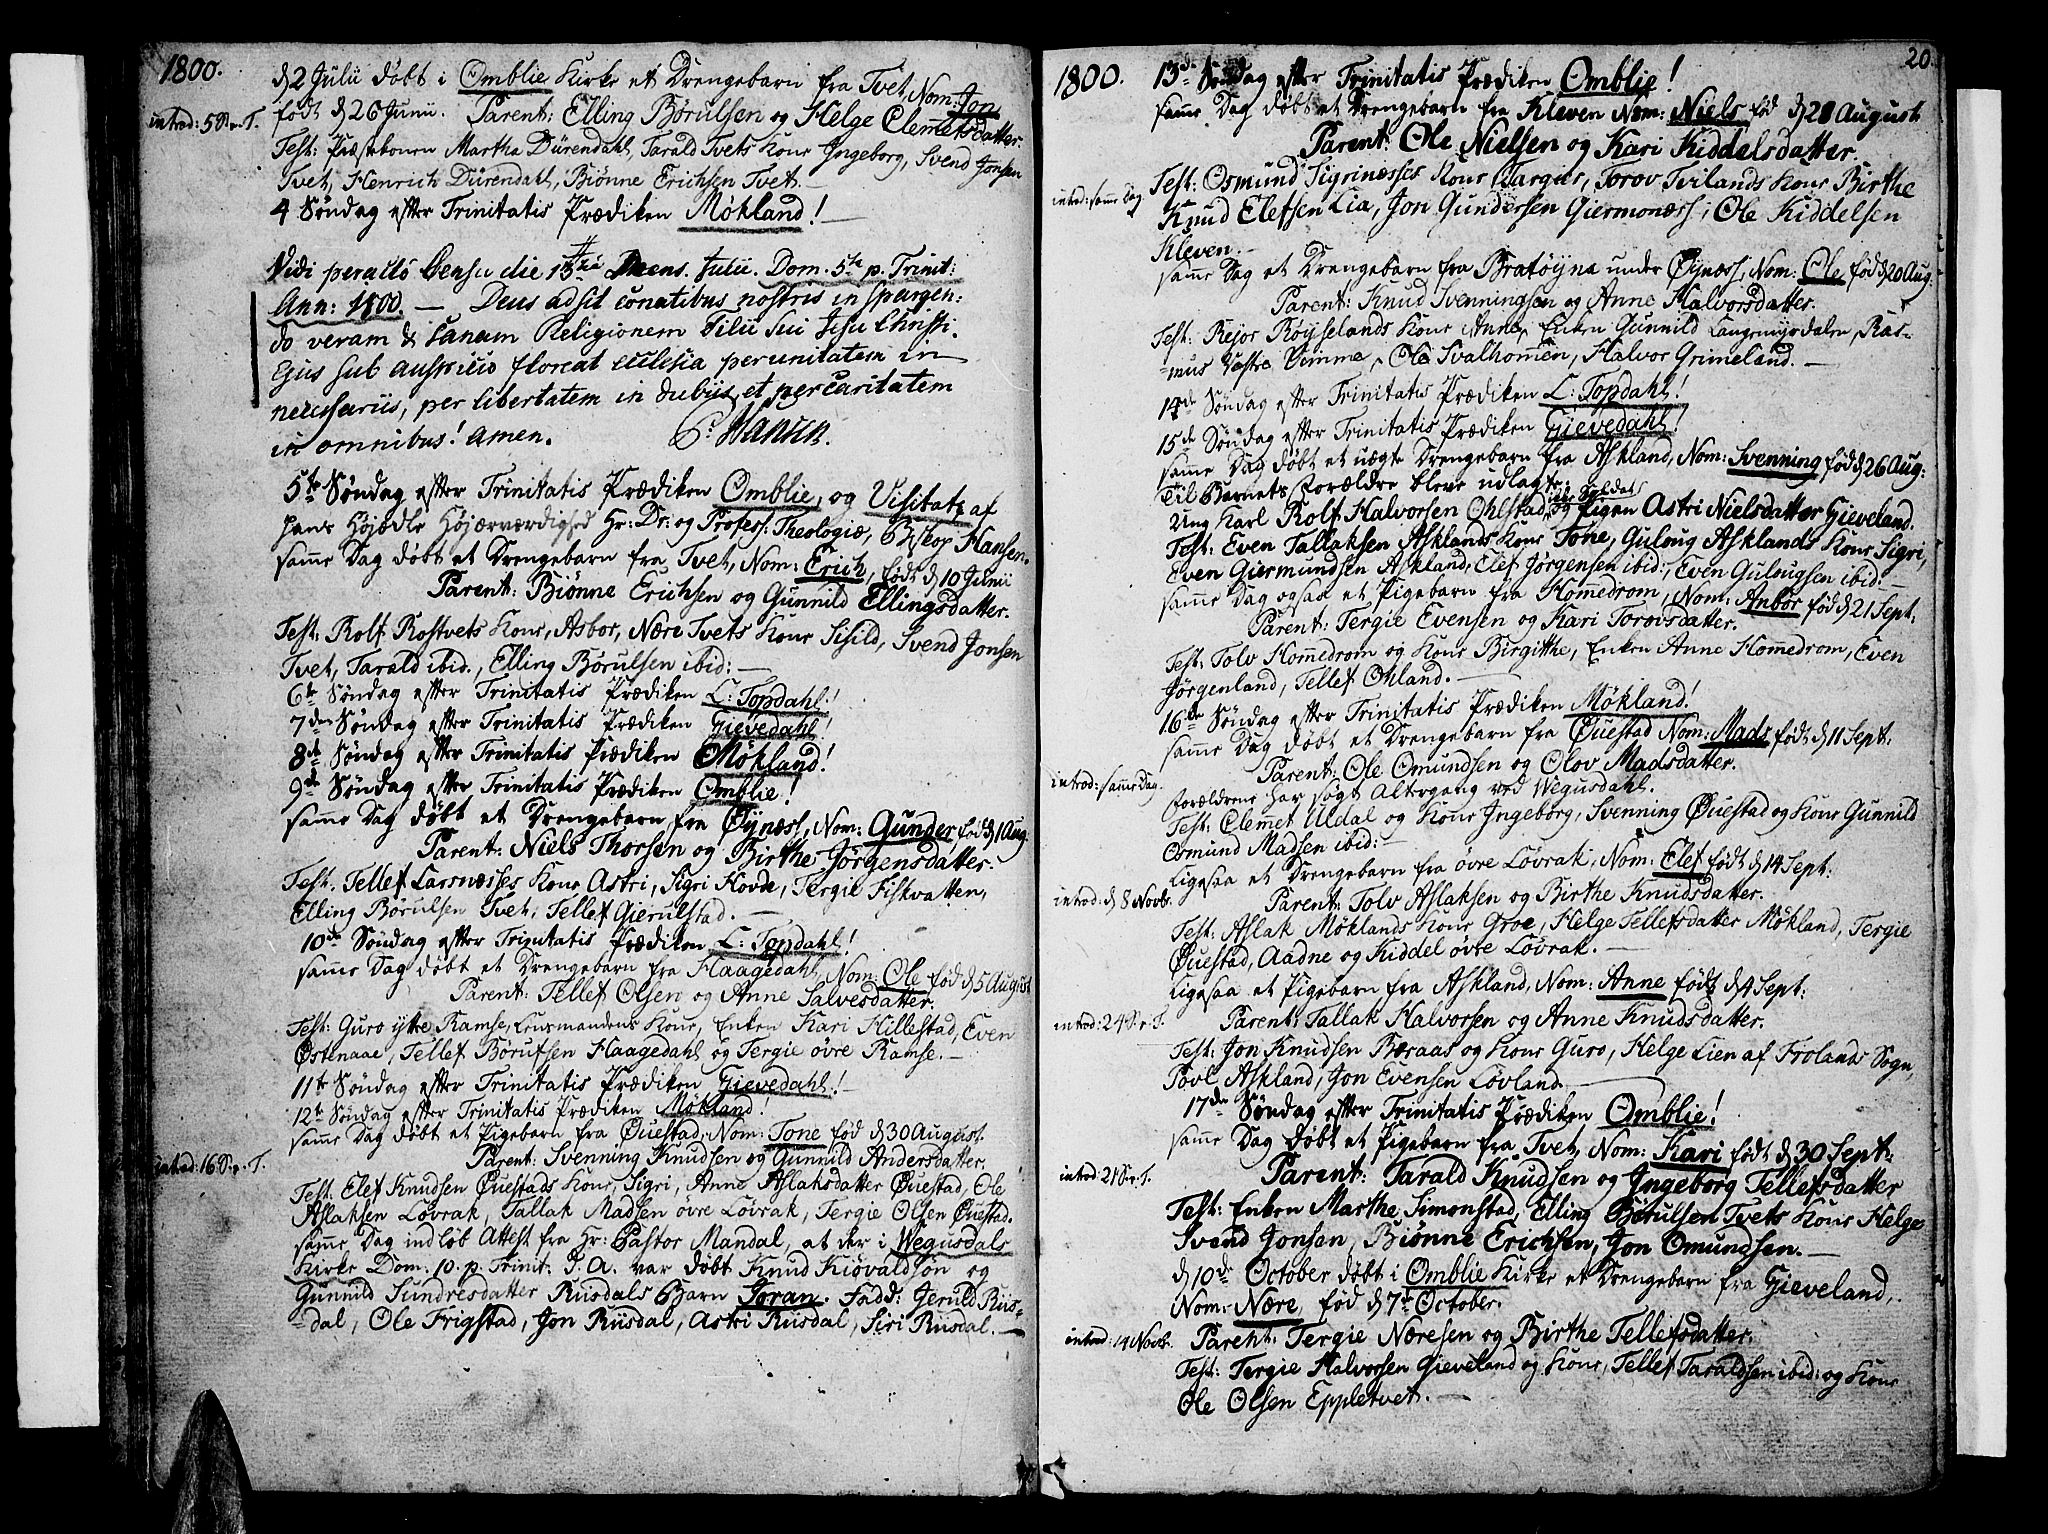 1800.
d 2 Julii døbt i Omblie Kirke et Drengebarn fra Tvet, Nom: Jon
født d 26 Junii. Parent: Elling Børulsen og Helge Clemetsdatter.
introd: 5 S. p. T.
Test: Præstekonen Martha Dürendahl, Tarald Tvets Kone Ingeborg, Svend Jonsen
Tvet, Henrich Dürendahl, Biønne Erichsen Tvet. —
4 Søndag efter Trinitatis Prædiken Møkland! —
Vidi peracto Censu die 13tia Mens. Julii. Dom. 5te p. Trinit:
Ann: 1800. — Deus adsit conatibus nostris in spargen:
do veram & sanam Religionem Filii sui Jesu Christi.
Ejus sub auspicio floreat ecclesia per unitatem in
necessariis, per libertatem in dubiis, et per caritatem
in omnibus! Amen. P. Hansen.
5te Søndag efter Trinitatis Prædiken Omblie, og Visitatz af
hans Høiædle Høiærværdighed Hr: Dr: og Profess: Theologiæ, Biskop Hansen.
samme Dag døbt et Drengebarn fra Tvet, Nom: Erich, født d 10 Julii
Parent: Biønne Erichsen og Gunnild Ellingsdatter.
Test: Rolf Rostvets Kone, Asbor, Nære Tvets Kone Sisild, Svend Jonsen
Tvet, Tarald ibid., Elling Børulsen ibid: —
6te Søndag efter Trinitatis Prædiken L: Topdahl!
7den Søndag efter Trinitatis Prædiken Gievedahl!
8de Søndag efter Trinitatis Prædiken Møkland!
9de Søndag efter Trinitatis Prædiken Omblie!
samme Dag døbt et Drengebarn fra Øynæss, Nom: Gunder, fød d 1 Aug
Parent: Niels Thorsen og Birthe Jørgensdatter.
Test: Tellef Larsnæsses Kone Astri, Sigri Hovde, Tergie Fiskvatten,
Elling Børulsen Tvet, Tellef Gierulstad. —
10de Søndag efter Trinitatis Prædiken L: Topdahl!
samme Dag døbt et Drengebarn fra Haagedahl, Nom: Ole fød d 5 August
Parent: Tellef Olsen og Anne Salvesdatter.
Test: Guro ytre Ramse, Lensmandens Kone, Enken Kari Hillestad, Even
Østenaae, Tellef Børufsen Haagedahl og Tergie øvre Ramse. —
11te Søndag efter Trinitatis Prædiken Gievedahl! —
12te Søndag efter Trinitatis Prædiken Møkland!
samme Dag døbt et Pigebarn fra Øuestad, Nom: Tone fød d 30 August
Parent: Svenning Knudsen og Gunnild Andersdatter.
introd: 16 S. p. T.
Test: Elef Knudsen Øuestads Kone, Sigri, Anne Aslaksdatter Øuestad, Ole
Aslaksen Løvrak, Tallak Madsen øvre Løvrak, Tergie Olsen Øuestad.
samme Dag indløb Attest fra Hr: Pastor Mandal, at der i Wegusdals
Kirke Dom: 10. p. Trinit: I. A. var døbt Knud Kiøvaldsøn og
Gunnild Sundresdatter Riisdals Barn Joran. Fadd: Jeruld Riis-
-dal, Ole Frigstad, Jon Riisdal, Astri Riisdal, Siri Riisdal. —
20
1800.
13de Søndag efter Trinitatis Prædiken Omblie!
samme Dag døbt et Drengebarn fra Kleven Nom: Niels fød d 28 August
Parent: Ole Nielsen og Kari Kiddelsdatter.
introd: samme Dag.
Test: Osmund Sigrinæsses Kone Targier, Torov Tvilands Kone Birthe
Knud Elefsen Lia, Jon Gundersen Giermonæss, Ole Kiddelsen
Kleven. —
samme Dag et Drengebarn fra Bratøyna under Øynæss, Nom: Ole fød d 20 Aug.
Parent: Knud Svenningsen og Anne Halvorsdatter.
Test: Rejor Røyselands Kone Anne, Enken Gunnild Langemyrdalen, Ras-
-mus Vestre Vimme, Ole Svalhommen, Halvor Grimeland. —
14de Søndag efter Trinitatis Prædiken L: Topdahl!
15de Søndag efter Trinitatis Prædiken Gievedahl!
samme Dag døbt et uægte Drengebarn fra Askland, Nom: Svenning fød d 26 Aug:
Til Barnets Forældre bleve udlagte:
Ung Karl Rolf Halvorsen Ohlstad, ikke Soldat, og Pigen Astri Nielsdatter Gieveland.
Test: Even Tallaksen Asklands Kone Tone, Guloug Asklands Kone Sigri,
Even Giermundsen Askland, Elef Jørgensen ibid:, Even Gulougsen ibid: —
samme Dag ogsaa et Pigebarn fra Homedrom, Nom: Anbor fød d 21 Sept:
Parent: Tergie Evensen og Kari Torovsdatter.
Test: Tolv Homedrom og Kone Birgitthe, Enken Anne Homedrom, Even
Jørgenland, Tellef Ohland. —
16de Søndag efter Trinitatis Prædiken Møkland!
samme Dag døbt et Drengebarn fra Øuestad Nom: Mads født d 11 Sept:
Parent: Ole Omundsen og Olov Madsdatter.
introd: samme Dag.
Forældrene har søgt Altergang ved Wegusdahl.
Test: Clemet Uldal og Kone Ingeborg, Svenning Øuestad og Kone Gunnild
Osmund Madsen ibid: —
Ligesaa et Drengebarn fra øvre Løvrak, Nom: Elef født d 14 Sept:
introd: d 8 Novb.
Parent: Tolv Aslaksen og Birthe Knudsdatter.
Test: Aslak Møklands Kone Groe, Helge Tellefsdatter Møkland, Tergie
Øuestad, Aadne og Kiddel øvre Løvrak. —
Ligesaa et Pigebarn fra Askland, Nom: Anne født d 4 Sept:
introd: 24 S. p. T.
Parent: Tallak Halvorsen og Anne Knudsdatter.
Test: Jon Knudsen Bæraas og Kone Guro, Helge Lien af Frolands Sogn,
Povl Askland, Jon Evensen Løvland. —
17de Søndag efter Trinitatis Prædiken Omblie!
samme Dag døbt et Pigebarn fra Tvet, Nom: Kari født d 30 Sept:
introd: 21 S. p. T.
Parent: Tarald Knudsen og Ingeborg Tellefsdatter
Test: Enken Marthe Simonstad, Elling Børulsen Tvets Kone Helge
Svend Jonsen, Biønne Erichsen, Jon Omundsen. —
d 10de October døbt i Omblie Kirke et Drengebarn fra Gieveland,
Nom: Nære, fød d 7de October.
introd: 14 Novb.
Parent: Tergie Næresen og Birthe Tellefsdatter.
Test: Tergie Halvorsen Gieveland og Kone, Tellef Taraldsen ibid: og Kone
Ole Olsen Eppletvet. —